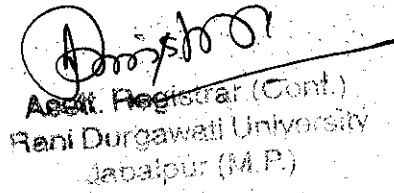 Asstt. Registrar (Conf.)
Rani Durgawati University
Jabalpur (M.P.)